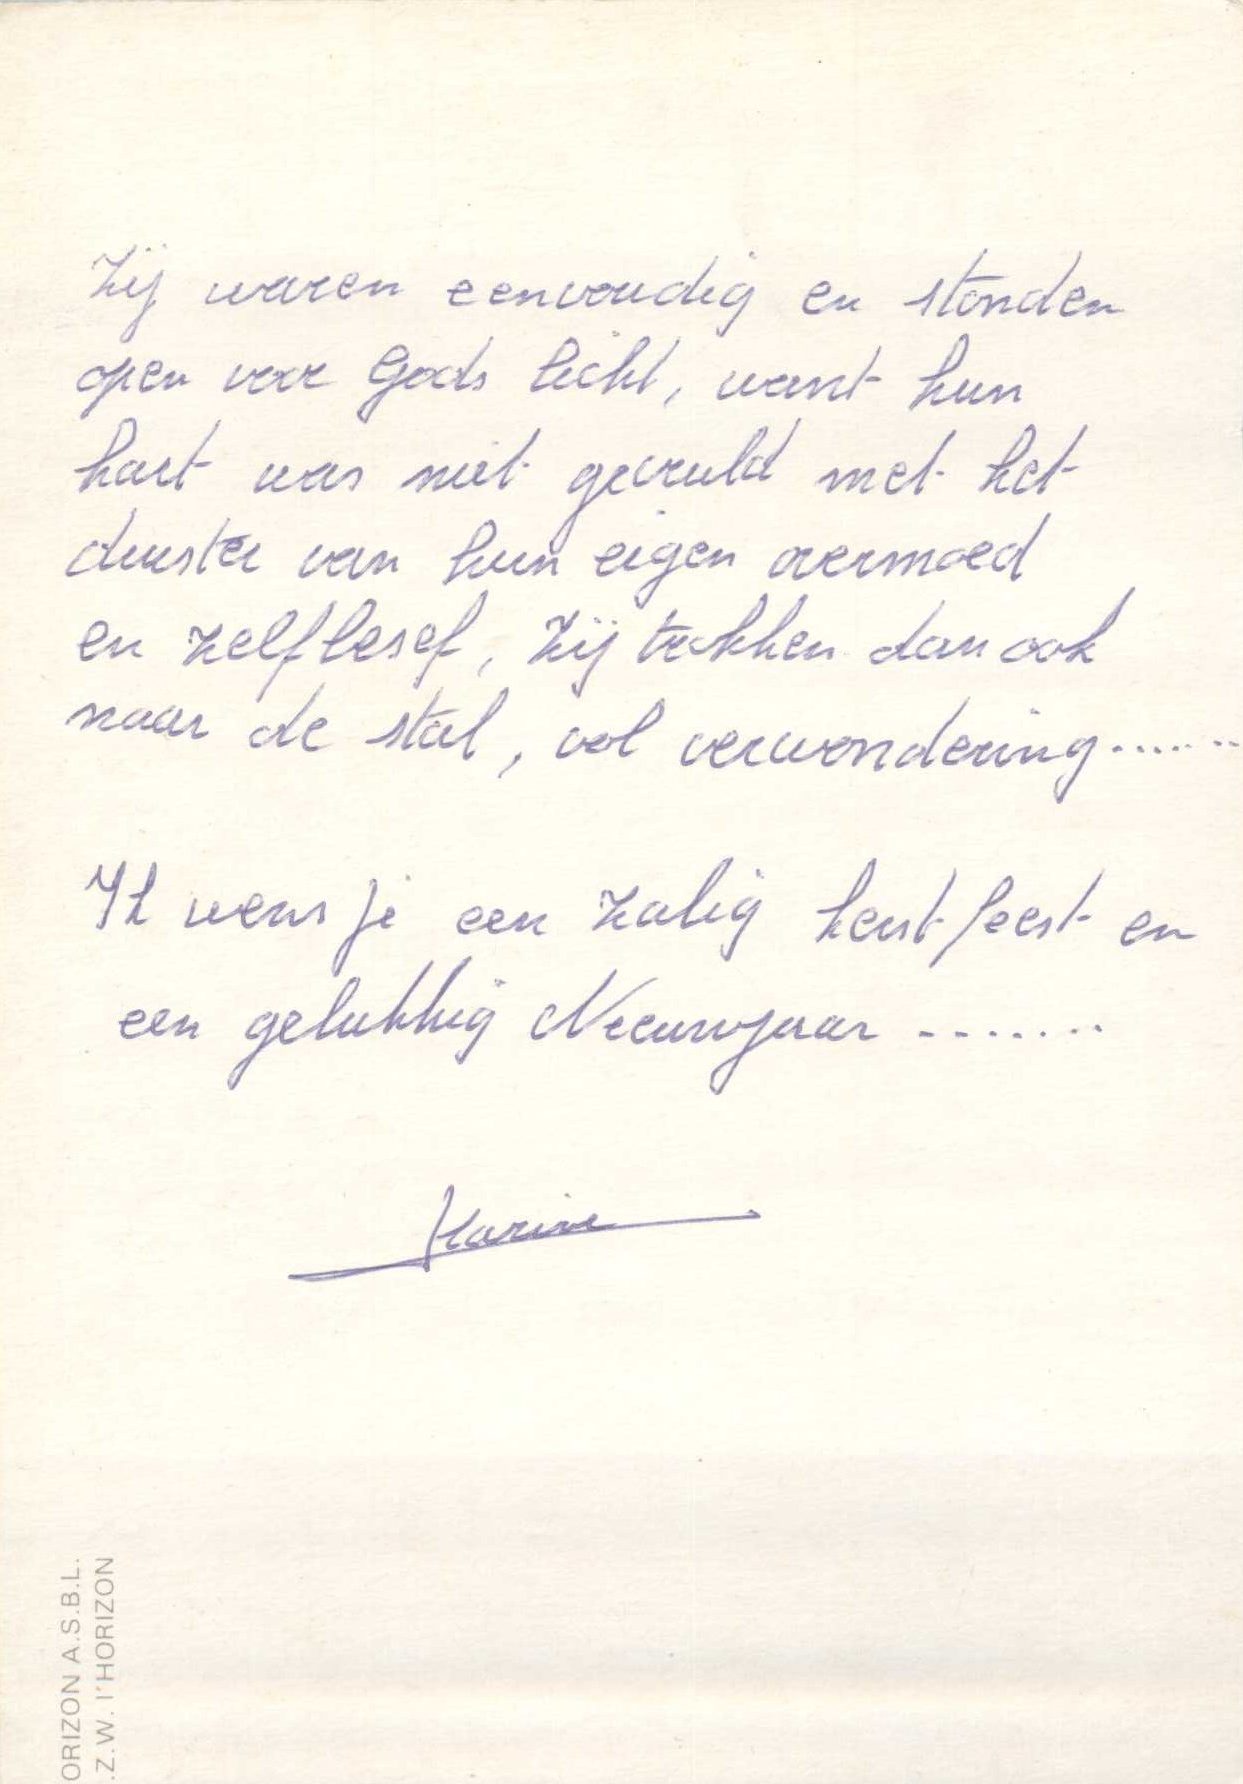 Zij waren eenvoudig en stonden
open voor Gods licht, want hun
hart was niet gevuld met het
duister van hun eigen overmoed
en zelfbesef, zij trokken dan ook
naar de stal, vol verwondering.......
Ik wens je een zalig kerstfeest en
een gelukkig Nieuwjaar .......
Karine
ORIZON A.S.B.L.
.Z.W. l'HORIZON